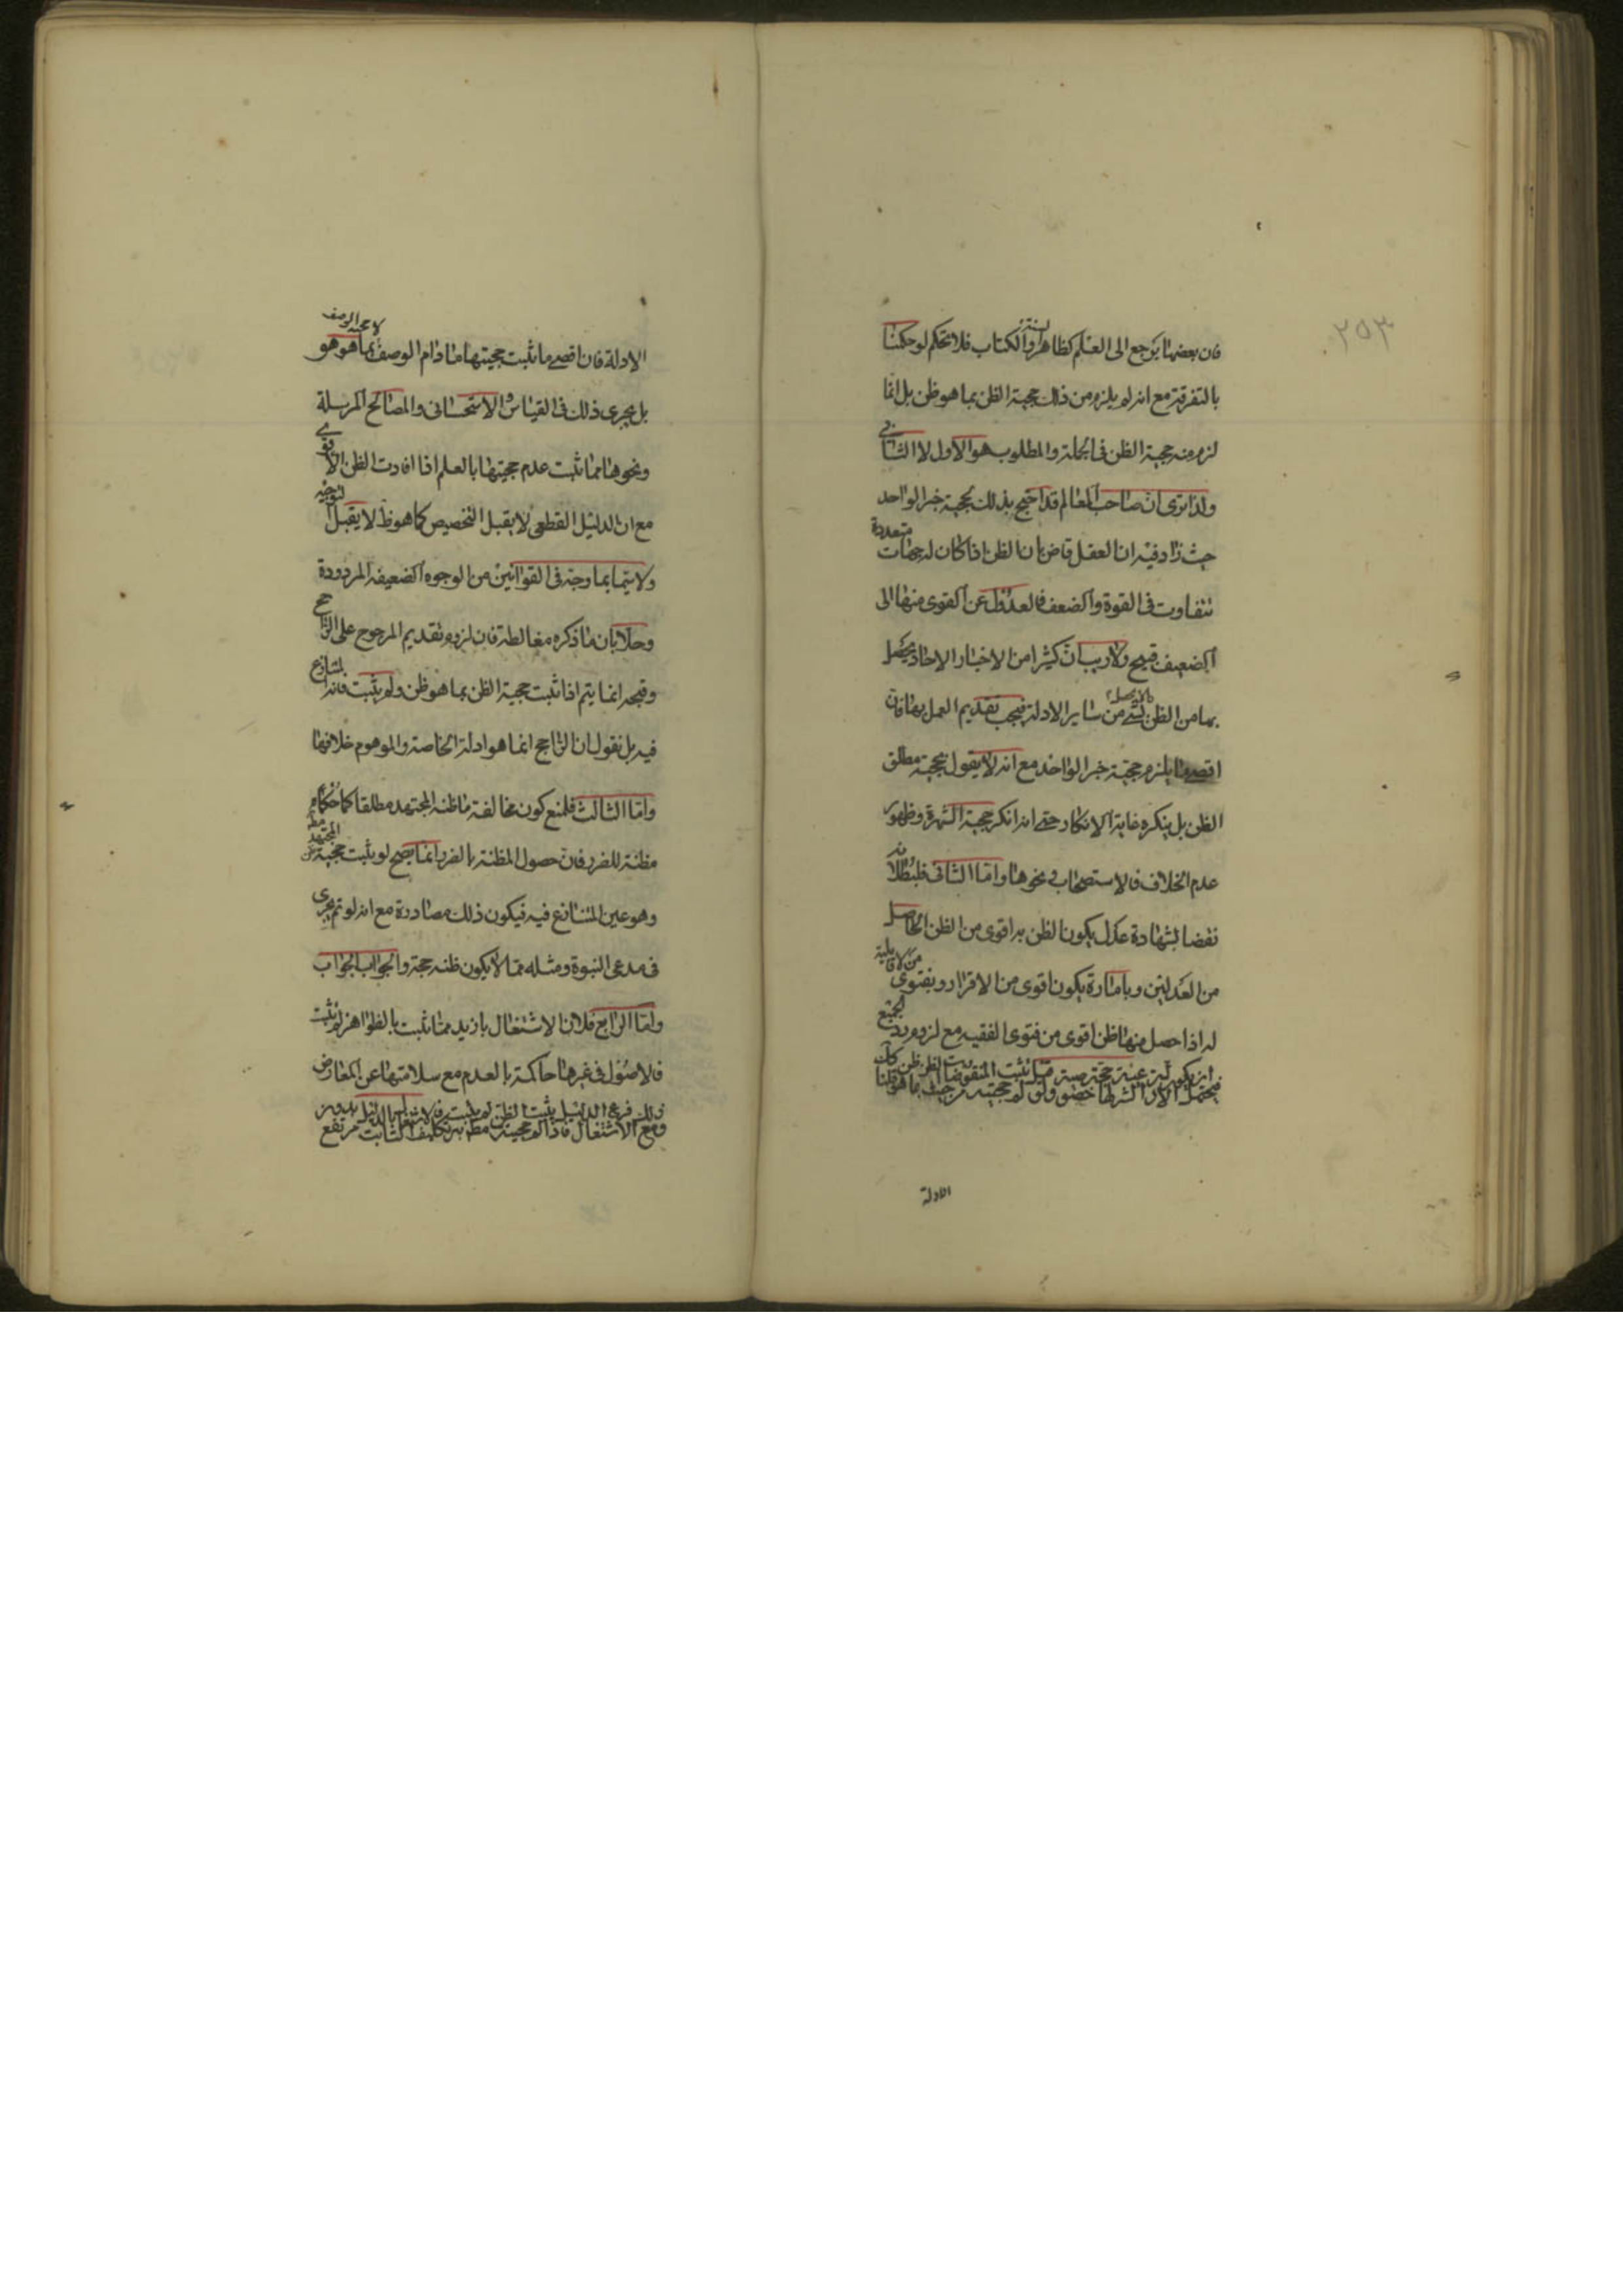 ٢٥٣
فان بعضها يرجع الى العلم كظاهر السنة والكتاب فلا تحكم لو حكمنا
بالتفرقة مع انه لم يلزم من ذلك حجية الظن بما هو ظن بل انما
لزم منه حجية الظن في الجملة والمطلوب هو الاول لا الثاني
ولذا ترى ان صاحب المعالم قد احتج بذلك لحجية خبر الواحد
حيث زاد فيه ان العقل قاض بان الظن اذا كان له جهات متعددة
تتفاوت في القوة والضعف فالعدول عن القوى منها الى
الضعيف قبيح ولا ريب ان كثيرا من الاخبار الاحاد يحصل
بها من الظن ما لا يحصل بشئ من ساير الادلة فيجب تقديم العمل بها فان
اقصى ما يلزم حجية خبر الواحد مع انه لا يقول بحجية مطلق
الظن بل ينكره غاية الانكار حتى انه انكر حجية الشهرة وظهور
عدم الخلاف والاستصحاب ونحوها واما الثاني فلبطلانه
نقضا بشهادة عدل يكون الظن به اقوى من الظن الحاصل
من العدلين وبامارة يكون اقوى من الاقرار وبفتوى من لا قابلية
له اذا حصل منها ظن اقوى من فتوى الفقيه مع لزوم
الادلة
الادلة فان اقصى ما ثبت حجيتها ما دام الوصف لا حجية الوصف بما هو هو
بل يجرى ذلك في القياس والاستحسانى والمصالح المرسلة
ونحوها مما ثبت عدم حجيتها بالعلم اذا افادت الظن الاقوى
مع ان الدليل القطعى لا يقبل التخصيص كما هو ظ لا يقبل التوجيه
ولا سيما بما وجه في القوانين من الوجوه الضعيفه المردودة
وحلا بان ما ذكره مغالطة فان لزوم تقديم المرجوح على الراجح
وقبحه انما يتم اذا ثبت حجية الظن بما هو ظن ولم يثبت فانه المتنازع
فيه بل نقول ان الراجح انما هو ادلة الخاصة والموهوم خلافها
واما الثالث فلمنع كون مخالفة ما ظنه المجتهد مطلقا كما حكم
مظنة للضرر فان حصول المظنة بالضرر انما يصح لو ثبت حجية ظن المجتهد مط
وهو عين المتنازع فيه فيكون ذلك مصادرة مع انه لو تم يجرى
في مدعى النبوة ومثله مما لا يكون ظنه حجة والجواب الجواب
واما الرابع فلان الاشتغال بازيد مما ثبت بالظواهر لم يثبت
فالاصول في غيرها حاكمة بالعدم مع سلامتها عن المعارض